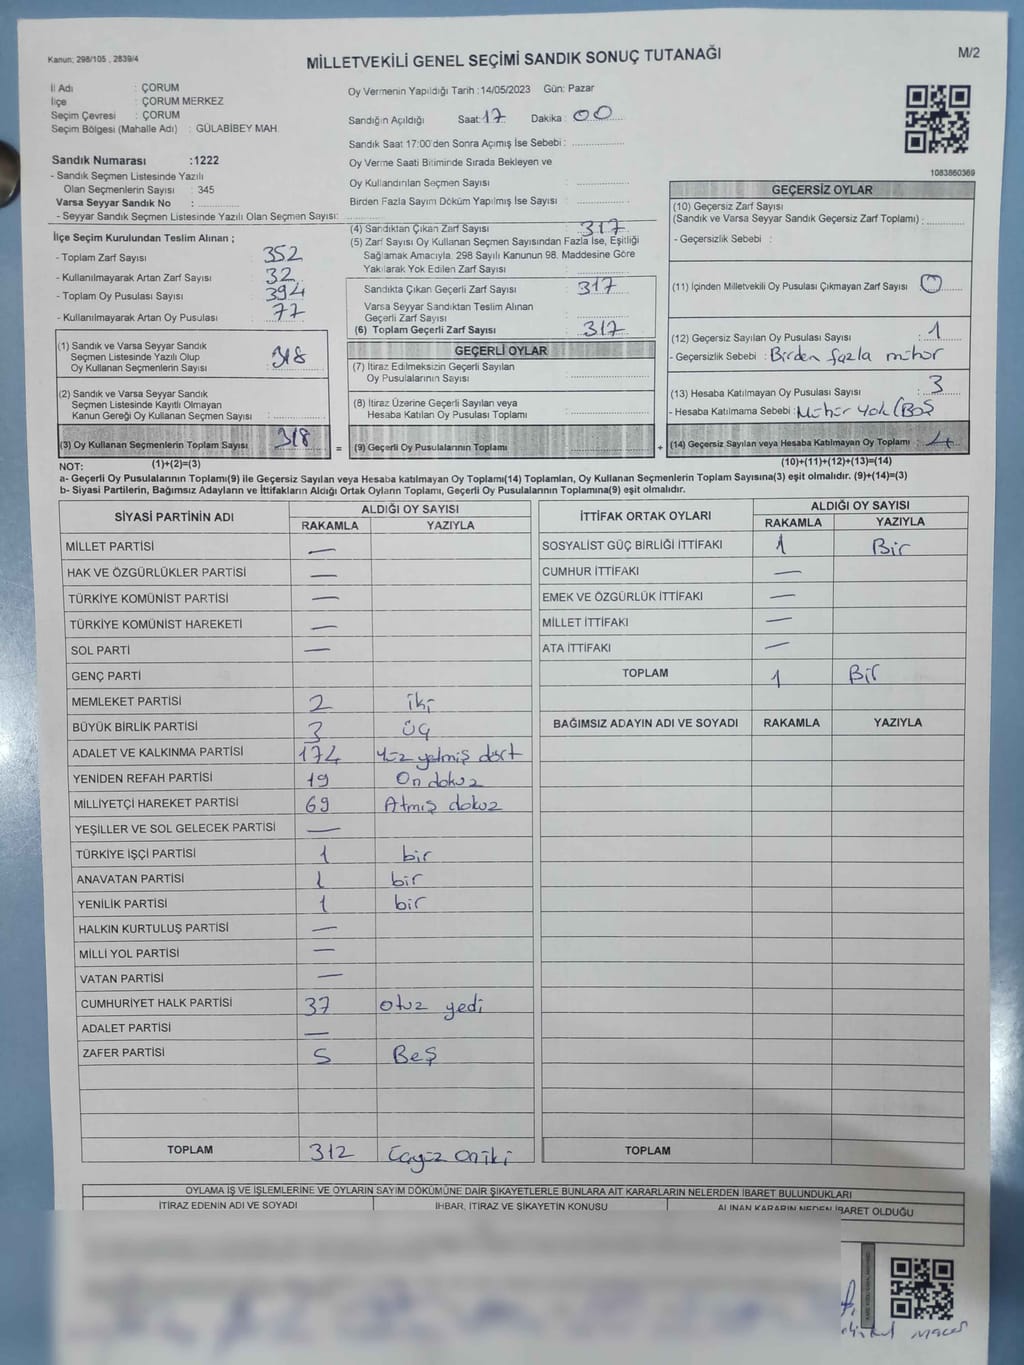 Kanun; 298/105 , 2839/4
MİLLETVEKİLİ GENEL SEÇİMİ SANDIK SONUÇ TUTANAĞI
M/2
İl Adı : ÇORUM
İlçe : ÇORUM MERKEZ
Seçim Çevresi : ÇORUM
Seçim Bölgesi (Mahalle Adı) : GÜLABİBEY MAH.
Sandık Numarası :1222
- Sandık Seçmen Listesinde Yazılı
Olan Seçmenlerin Sayısı : 345
Varsa Seyyar Sandık No :
- Seyyar Sandık Seçmen Listesinde Yazılı Olan Seçmen Sayısı:
Oy Vermenin Yapıldığı Tarih :14/05/2023 Gün: Pazar
Sandığın Açıldığı Saat:17 Dakika: 00
Sandık Saat 17:00'den Sonra Açımış İse Sebebi :
Oy Verme Saati Bitiminde Sırada Bekleyen ve
Oy Kullandırılan Seçmen Sayısı :
Birden Fazla Sayım Döküm Yapılmış İse Sayısı :
1083860369
İlçe Seçim Kurulundan Teslim Alınan ;
- Toplam Zarf Sayısı : 352
- Kullanılmayarak Artan Zarf Sayısı : 32
- Toplam Oy Pusulası Sayısı : 394
- Kullanılmayarak Artan Oy Pusulası : 77
(1) Sandık ve Varsa Seyyar Sandık
Seçmen Listesinde Yazılı Olup
Oy Kullanan Seçmenlerin Sayısı : 318
(2) Sandık ve Varsa Seyyar Sandık
Seçmen Listesinde Kayıtlı Olmayan
Kanun Gereği Oy Kullanan Seçmen Sayısı :
(3) Oy Kullanan Seçmenlerin Toplam Sayısı 318
(1)+(2)=(3)
(4) Sandıktan Çıkan Zarf Sayısı : 317
(5) Zarf Sayısı Oy Kullanan Seçmen Sayısından Fazla İse, Eşitliği
Sağlamak Amacıyla, 298 Sayılı Kanunun 98. Maddesine Göre
Yakılarak Yok Edilen Zarf Sayısı :
Sandıkta Çıkan Geçerli Zarf Sayısı : 317
Varsa Seyyar Sandıktan Teslim Alınan
Geçerli Zarf Sayısı :
(6) Toplam Geçerli Zarf Sayısı : 317
GEÇERLİ OYLAR
(7) İtiraz Edilmeksizin Geçerli Sayılan
Oy Pusulalarının Sayısı :
(8) İtiraz Üzerine Geçerli Sayılan veya
Hesaba Katılan Oy Pusulaları Toplamı :
= (9) Geçerli Oy Pusulalarının Toplamı :
GEÇERSİZ OYLAR
(10) Geçersiz Zarf Sayısı
(Sandık ve Varsa Seyyar Sandık Geçersiz Zarf Toplamı) :
- Geçersizlik Sebebi :
(11) İçinden Milletvekili Oy Pusulası Çıkmayan Zarf Sayısı : 0
(12) Geçersiz Sayılan Oy Pusulası Sayısı : 1
- Geçersizlik Sebebi : Birden fazla mühür
(13) Hesaba Katılmayan Oy Pusulası Sayısı : 3
- Hesaba Katılmama Sebebi : Mühür yok (Boş
+ (14) Geçersiz Sayılan veya Hesaba Katılmayan Oy Toplamı : 4
(10)+(11)+(12)+(13)=(14)
NOT:
a- Geçerli Oy Pusulalarının Toplamı(9) ile Geçersiz Sayılan veya Hesaba katılmayan Oy Toplamı(14) Toplamları, Oy Kullanan Seçmenlerin Toplam Sayısına(3) eşit olmalıdır. (9)+(14)=(3)
b- Siyasi Partilerin, Bağımsız Adayların ve İttifakların Aldığı Ortak Oyların Toplamı, Geçerli Oy Pusulalarının Toplamına(9) eşit olmalıdır.
SİYASİ PARTİNİN ADI ALDIĞI OY SAYISI
RAKAMLA YAZIYLA
MİLLET PARTİSİ —
HAK VE ÖZGÜRLÜKLER PARTİSİ —
TÜRKİYE KOMÜNİST PARTİSİ —
TÜRKİYE KOMÜNİST HAREKETİ —
SOL PARTİ —
GENÇ PARTİ
MEMLEKET PARTİSİ 2 iki
BÜYÜK BİRLİK PARTİSİ 3 üç
ADALET VE KALKINMA PARTİSİ 174 Yüz yetmiş dört
YENİDEN REFAH PARTİSİ 19 On dokuz
MİLLİYETÇİ HAREKET PARTİSİ 69 Atmış dokuz
YEŞİLLER VE SOL GELECEK PARTİSİ —
TÜRKİYE İŞÇİ PARTİSİ 1 bir
ANAVATAN PARTİSİ 1 bir
YENİLİK PARTİSİ 1 bir
HALKIN KURTULUŞ PARTİSİ —
MİLLİ YOL PARTİSİ —
VATAN PARTİSİ —
CUMHURİYET HALK PARTİSİ 37 otuz yedi
ADALET PARTİSİ —
ZAFER PARTİSİ 5 Beş
TOPLAM 312 Üçyüz oniki
İTTİFAK ORTAK OYLARI ALDIĞI OY SAYISI
RAKAMLA YAZIYLA
SOSYALİST GÜÇ BİRLİĞİ İTTİFAKI 1 Bir
CUMHUR İTTİFAKI —
EMEK VE ÖZGÜRLÜK İTTİFAKI —
MİLLET İTTİFAKI —
ATA İTTİFAKI —
TOPLAM 1 Bir
BAĞIMSIZ ADAYIN ADI VE SOYADI RAKAMLA YAZIYLA
TOPLAM
OYLAMA İŞ VE İŞLEMLERİNE VE OYLARIN SAYIM DÖKÜMÜNE DAİR ŞİKAYETLERLE BUNLARA AİT KARARLARIN NELERDEN İBARET BULUNDUKLARI
İTİRAZ EDENİN ADI VE SOYADI İHBAR, İTİRAZ VE ŞİKAYETİN KONUSU ALINAN KARARIN NEDEN İBARET OLDUĞU